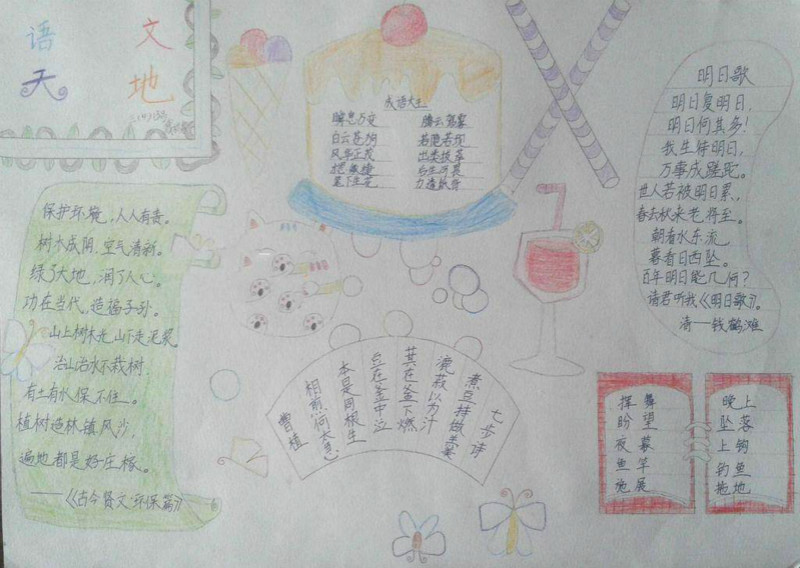 语文
天地
成语大王
瞬息万变 腾云驾雾
白云苍狗 若隐若现
风华正茂 出类拔萃
笔下生花 力透纸背
明日歌
明日复明日,
明日何其多!
我生待明日,
万事成蹉跎。
世人若被明日累,
春去秋来老将至。
朝看水东流,
暮看日西坠。
百年明日能几何?
请君听我《明日歌》。
清一钱鹤滩
保护环境,人人有责。
树木成阴,空气清新。
绿了大地,润了人心。
功在当代,造福子孙。
山上树木光,山下走泥浆
治山治水不栽树,
有土有水保不住。
植树造林镇风沙,
遍地都是好庄稼。
——《古今贤文·环保篇》
七步诗
煮豆持做羹
漉菽以为汁
萁在釜下燃
豆在釜中泣
本是同根生
相煎何太急
曹植
挥舞
盼望
夜幕
鱼竿
施展
晚上
坠落
上钩
钓鱼
拖地